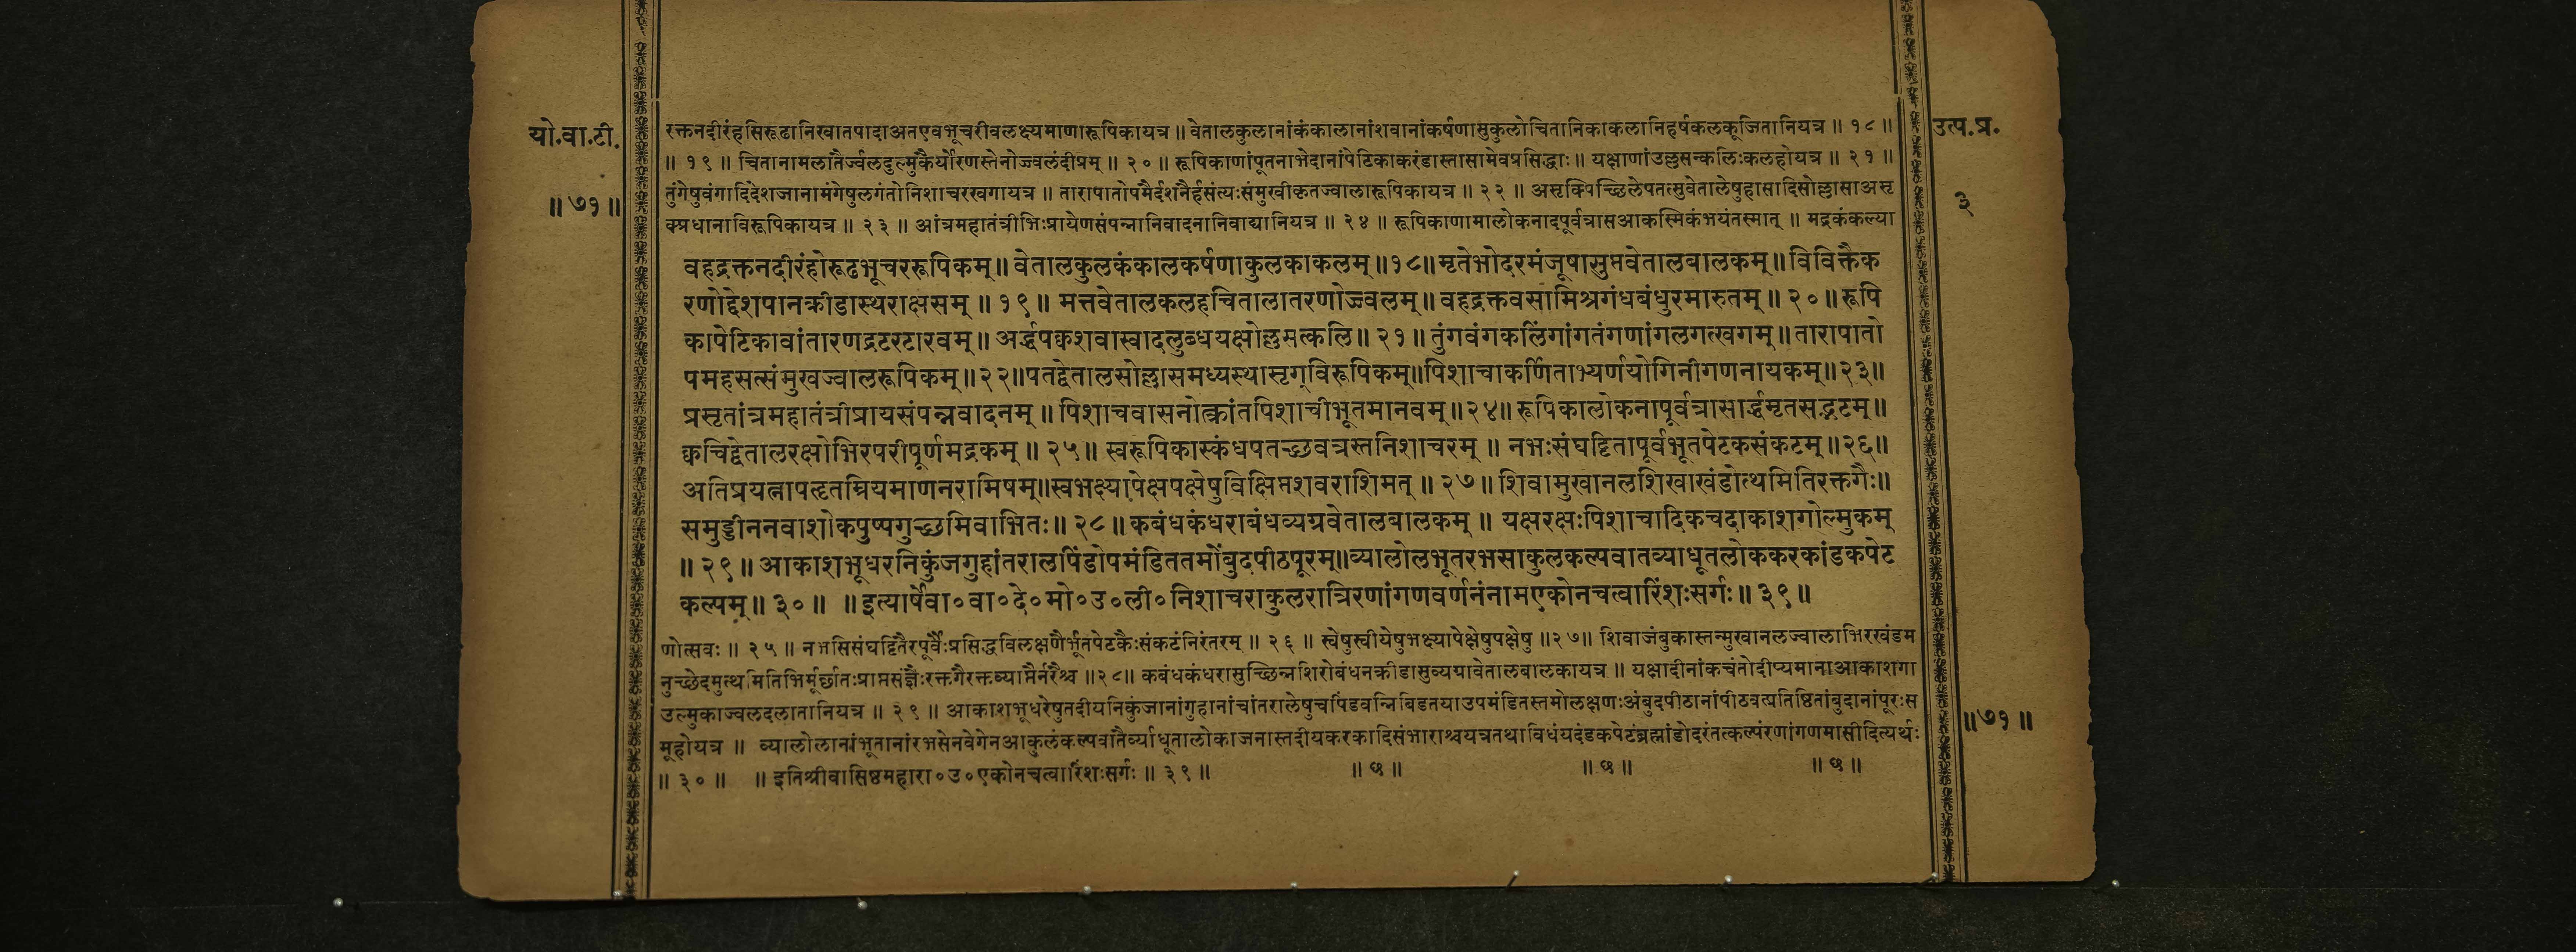 यो.वा.टी.
॥ ७१ ॥
उत्प.प्र.
३
रक्तनदीरंहसिरूढानिखातपादाअतएवभूचरीवलक्ष्यमाणारूपिकायत्र ॥ वेतालकुलानांकंकालानांशवानांकर्षणासुकुलोचितानिकाकलानिहर्षकलकूजितानियत्र ॥ १८ ॥
॥ १९ ॥ चितानामलातैर्ज्वलदुल्मुकैर्योरणस्तेनोज्वलंदीप्रम् ॥ २० ॥ रूपिकाणांपूतनाभेदानांपेटिकाकरंडास्तासामेवप्रसिद्धाः ॥ यक्षाणांउल्लसन्कलिःकलहोयत्र ॥ २१ ॥
तुंगेषुवंगादिदेशजानामंगेषुलगंतोनिशाचरखगायत्र ॥ तारापातोपमैर्दशनैर्हसंत्यःसंमुखीकृतज्वालारूपिकायत्र ॥ २२ ॥ असृक्पिच्छिलेपतत्सुवेतालेषुहासादिसोल्लासाअसृ
क्प्रधानाविरूपिकायत्र ॥ २३ ॥ आंत्रमहातंत्रीभिःप्रायेणसंपन्नानिवादनानिवाद्यानियत्र ॥ २४ ॥ रूपिकाणामालोकनादपूर्वत्रासआकस्मिकंभयंतस्मात् ॥ मद्रकंकल्या
वहद्रक्तनदीरंहोरूढभूचररूपिकम् ॥ वेतालकुलकंकालकर्षणाकुलकाकलम् ॥ १८ ॥ मृतेभोदरमंजूषासुप्तवेतालबालकम् ॥ विविक्तैक
रणोद्देशपानक्रीडास्थराक्षसम् ॥ १९ ॥ मत्तवेतालकलहचितालातरणोज्वलम् ॥ वहद्रक्तवसामिश्रगंधबंधुरमारुतम् ॥ २० ॥ रूपि
कापेटिकावांतारणद्रटरटारवम् ॥ अर्द्धपक्वशवास्वादलुब्धयक्षोल्लसत्कलि ॥ २१ ॥ तुंगवंगकलिंगांगतंगणांगलगत्खगम् ॥ तारापातो
पमहसत्संमुखज्वालरूपिकम् ॥ २२ ॥ पतद्वेतालसोल्लासमध्यस्थासृग्विरूपिकम् ॥ पिशाचाकर्णिताभ्यर्णयोगिनीगणनायकम् ॥ २३ ॥
प्रसृतांत्रमहातंत्रीप्रायसंपन्नवादनम् ॥ पिशाचवासनोत्क्रांतपिशाचीभूतमानवम् ॥ २४ ॥ रूपिकालोकनापूर्वत्रासार्द्धमृतसद्भटम् ॥
क्वचिद्वेतालरक्षोभिरपरीपूर्णमद्रकम् ॥ २५ ॥ स्वरूपिकास्कंधपतच्छवत्रस्तनिशाचरम् ॥ नभःसंघट्टितापूर्वभूतपेटकसंकटम् ॥ २६ ॥
अतिप्रयत्नापहृतम्रियमाणनरामिषम् ॥ स्वभक्ष्यापेक्षपक्षेषुविक्षिप्तशवराशिमत् ॥ २७ ॥ शिवामुखानलशिखाखंडोत्थमितिरक्तगैः ॥
समुड्डीननवाशोकपुष्पगुच्छमिवाभितः ॥ २८ ॥ कबंधकंधराबंधव्यग्रवेतालबालकम् ॥ यक्षरक्षःपिशाचादिकचदाकाशगोल्मुकम्
॥ २९ ॥ आकाशभूधरनिकुंजगुहांतरालपिंडोपमंडिततमोंबुदपीठपूरम् ॥ व्यालोलभूतरभसाकुलकल्पवातव्याधूतलोककरकांडकपेट
कल्पम् ॥ ३० ॥ ॥ इत्यार्षेवा०वा०दे०मो०उ०ली०निशाचराकुलरात्रिरणांगणवर्णनंनामएकोनचत्वारिंशःसर्गः ॥ ३९ ॥
णोत्सवः ॥ २५ ॥ नभसिसंघट्टितैरपूर्वैःप्रसिद्धविलक्षणैर्भूतपेटकैःसंकटंनिरंतरम् ॥ २६ ॥ स्वेषुस्वीयेषुभक्ष्यापेक्षेषुपक्षेषु ॥ २७ ॥ शिवाजंबुकास्तन्मुखानलज्वालाभिरखंडम
नुच्छेदमुत्थमितिभिर्मूर्छातःप्राप्तसंज्ञैःरक्तगैरक्तव्याप्तैर्नरैश्च ॥ २८ ॥ कबंधकंधरासुच्छिन्नशिरोबंधनक्रीडासुव्यग्रावेतालबालकायत्र ॥ यक्षादीनांकचंतोदीप्यमानाआकाशगा
उल्मुकाज्वलदलातानियत्र ॥ २९ ॥ आकाशभूधरेषुतदीयनिकुंजानांगुहानांचांतरालेषुचपिंडवन्निबिडतयाउपमंडितस्तमोलक्षणःअंबुदपीठानांपीठवत्प्रतिष्ठितांबुदानांपूरःस
मूहोयत्र ॥ व्यालोलानांभूतानांरभसेनवेगेनआकुलंकल्पवातैर्व्याधूतालोकाजनास्तदीयकरकादिसंभाराश्चयत्रतथाविधंयदंडकपेटंब्रह्मांडोदरंतत्कल्पंरणांगणमासीदित्यर्थः
॥ ३० ॥ ॥ इतिश्रीवासिष्ठमहारा०उ०एकोनचत्वारिंशःसर्गः ॥ ३९ ॥ ॥ छ ॥ ॥ छ ॥ ॥ छ ॥
॥ ७१ ॥